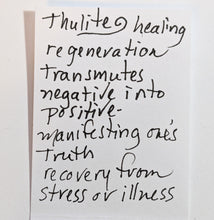 Thulite healing
regeneration
Transmutes
negative into
positive-
manifesting one's
Truth
recovery from
stress or illness